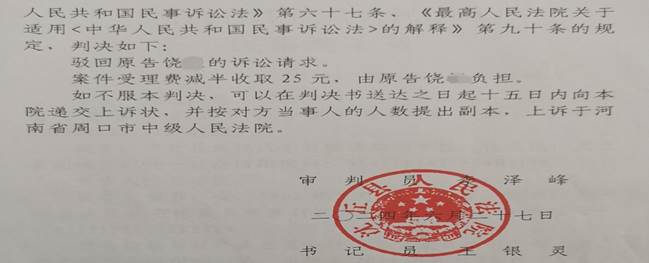 人民共和国民事诉讼法》第六十七条、《最高人民法院关于
适用<中华人民共和国民事诉讼法>的解释》第九十条的规
定，判决如下：
驳回原告饶 的诉讼请求。
案件受理费减半收取 25 元，由原告饶 负担。
如不服本判决，可以在判决书送达之日起十五日内向本
院递交上诉状，并按对方当事人的人数提出副本，上诉于河
南省周口市中级人民法院。
审 判 员 泽 峰
二〇二四年六月二十七日
县人民法院
书 记 员 王 银 灵